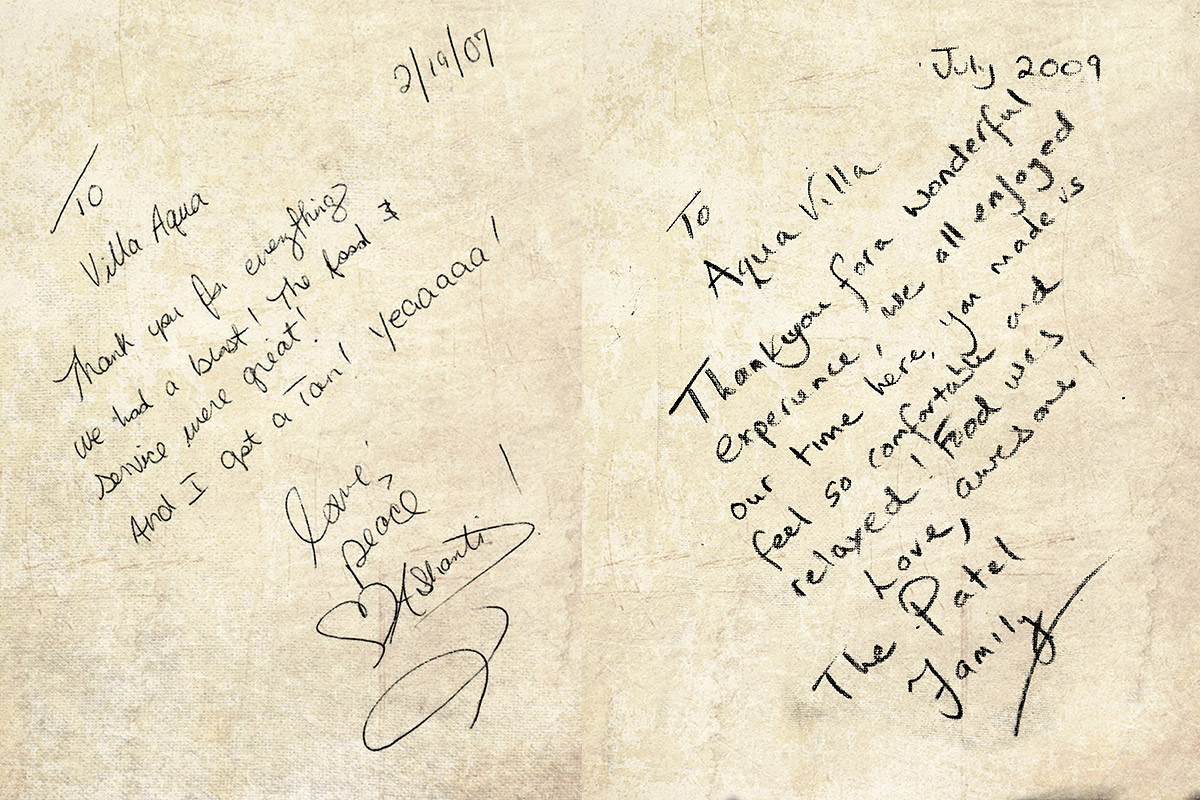 2/19/07
To
Villa Aqua
Thank you for everything
we had a blast! The food &
service were great!
And I got a Tan! Yeaaaaa!
Love,
peace
Ashanti
July 2009
To
Aqua Villa
Thankyou for a wonderful
experience, we all enjoyed
our time here, you made is
feel so comfortable and
relaxed! Food was
awesome!
Love,
The Patel
Family